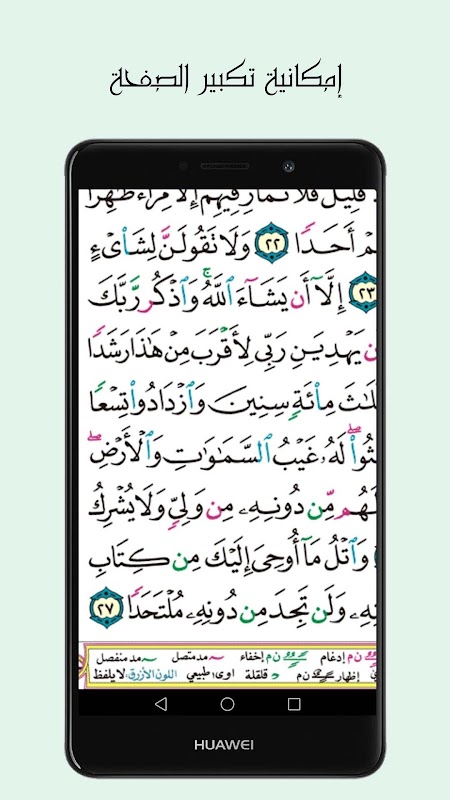 إمكانية تكبير الصفحة
قَلِيلٌ فَلَا تُمَارِ فِيهِمْ إِلَّا مِرَاءً ظَٰهِرًا
مْ أَحَدًا ٢٢ وَلَا تَقُولَنَّ لِشَا۟ىْءٍ
٢٣ إِلَّآ أَن يَشَآءَ ٱللَّهُ ۚ وَٱذْكُر رَّبَّكَ
ن يَهْدِيَنِ رَبِّى لِأَقْرَبَ مِنْ هَٰذَا رَشَدًا
لَٰثَ مِا۟ئَةٍ سِنِينَ وَٱزْدَادُوا۟ تِسْعًا
ثُوا۟ ۖ لَهُۥ غَيْبُ ٱلسَّمَٰوَٰتِ وَٱلْأَرْضِ ۖ
لَهُم مِّن دُونِهِۦ مِن وَلِىٍّ وَلَا يُشْرِكُ
وَٱتْلُ مَآ أُوحِىَ إِلَيْكَ مِن كِتَابِ
تِهِۦ وَلَن تَجِدَ مِن دُونِهِۦ مُلْتَحَدًا ٢٧
ن م إدغام ن م إخفاء مد متصل مد منفصل
إظهار ن م قلقلة اوى: طبيعي اللون الأزرق: لا يلفظ
HUAWEI